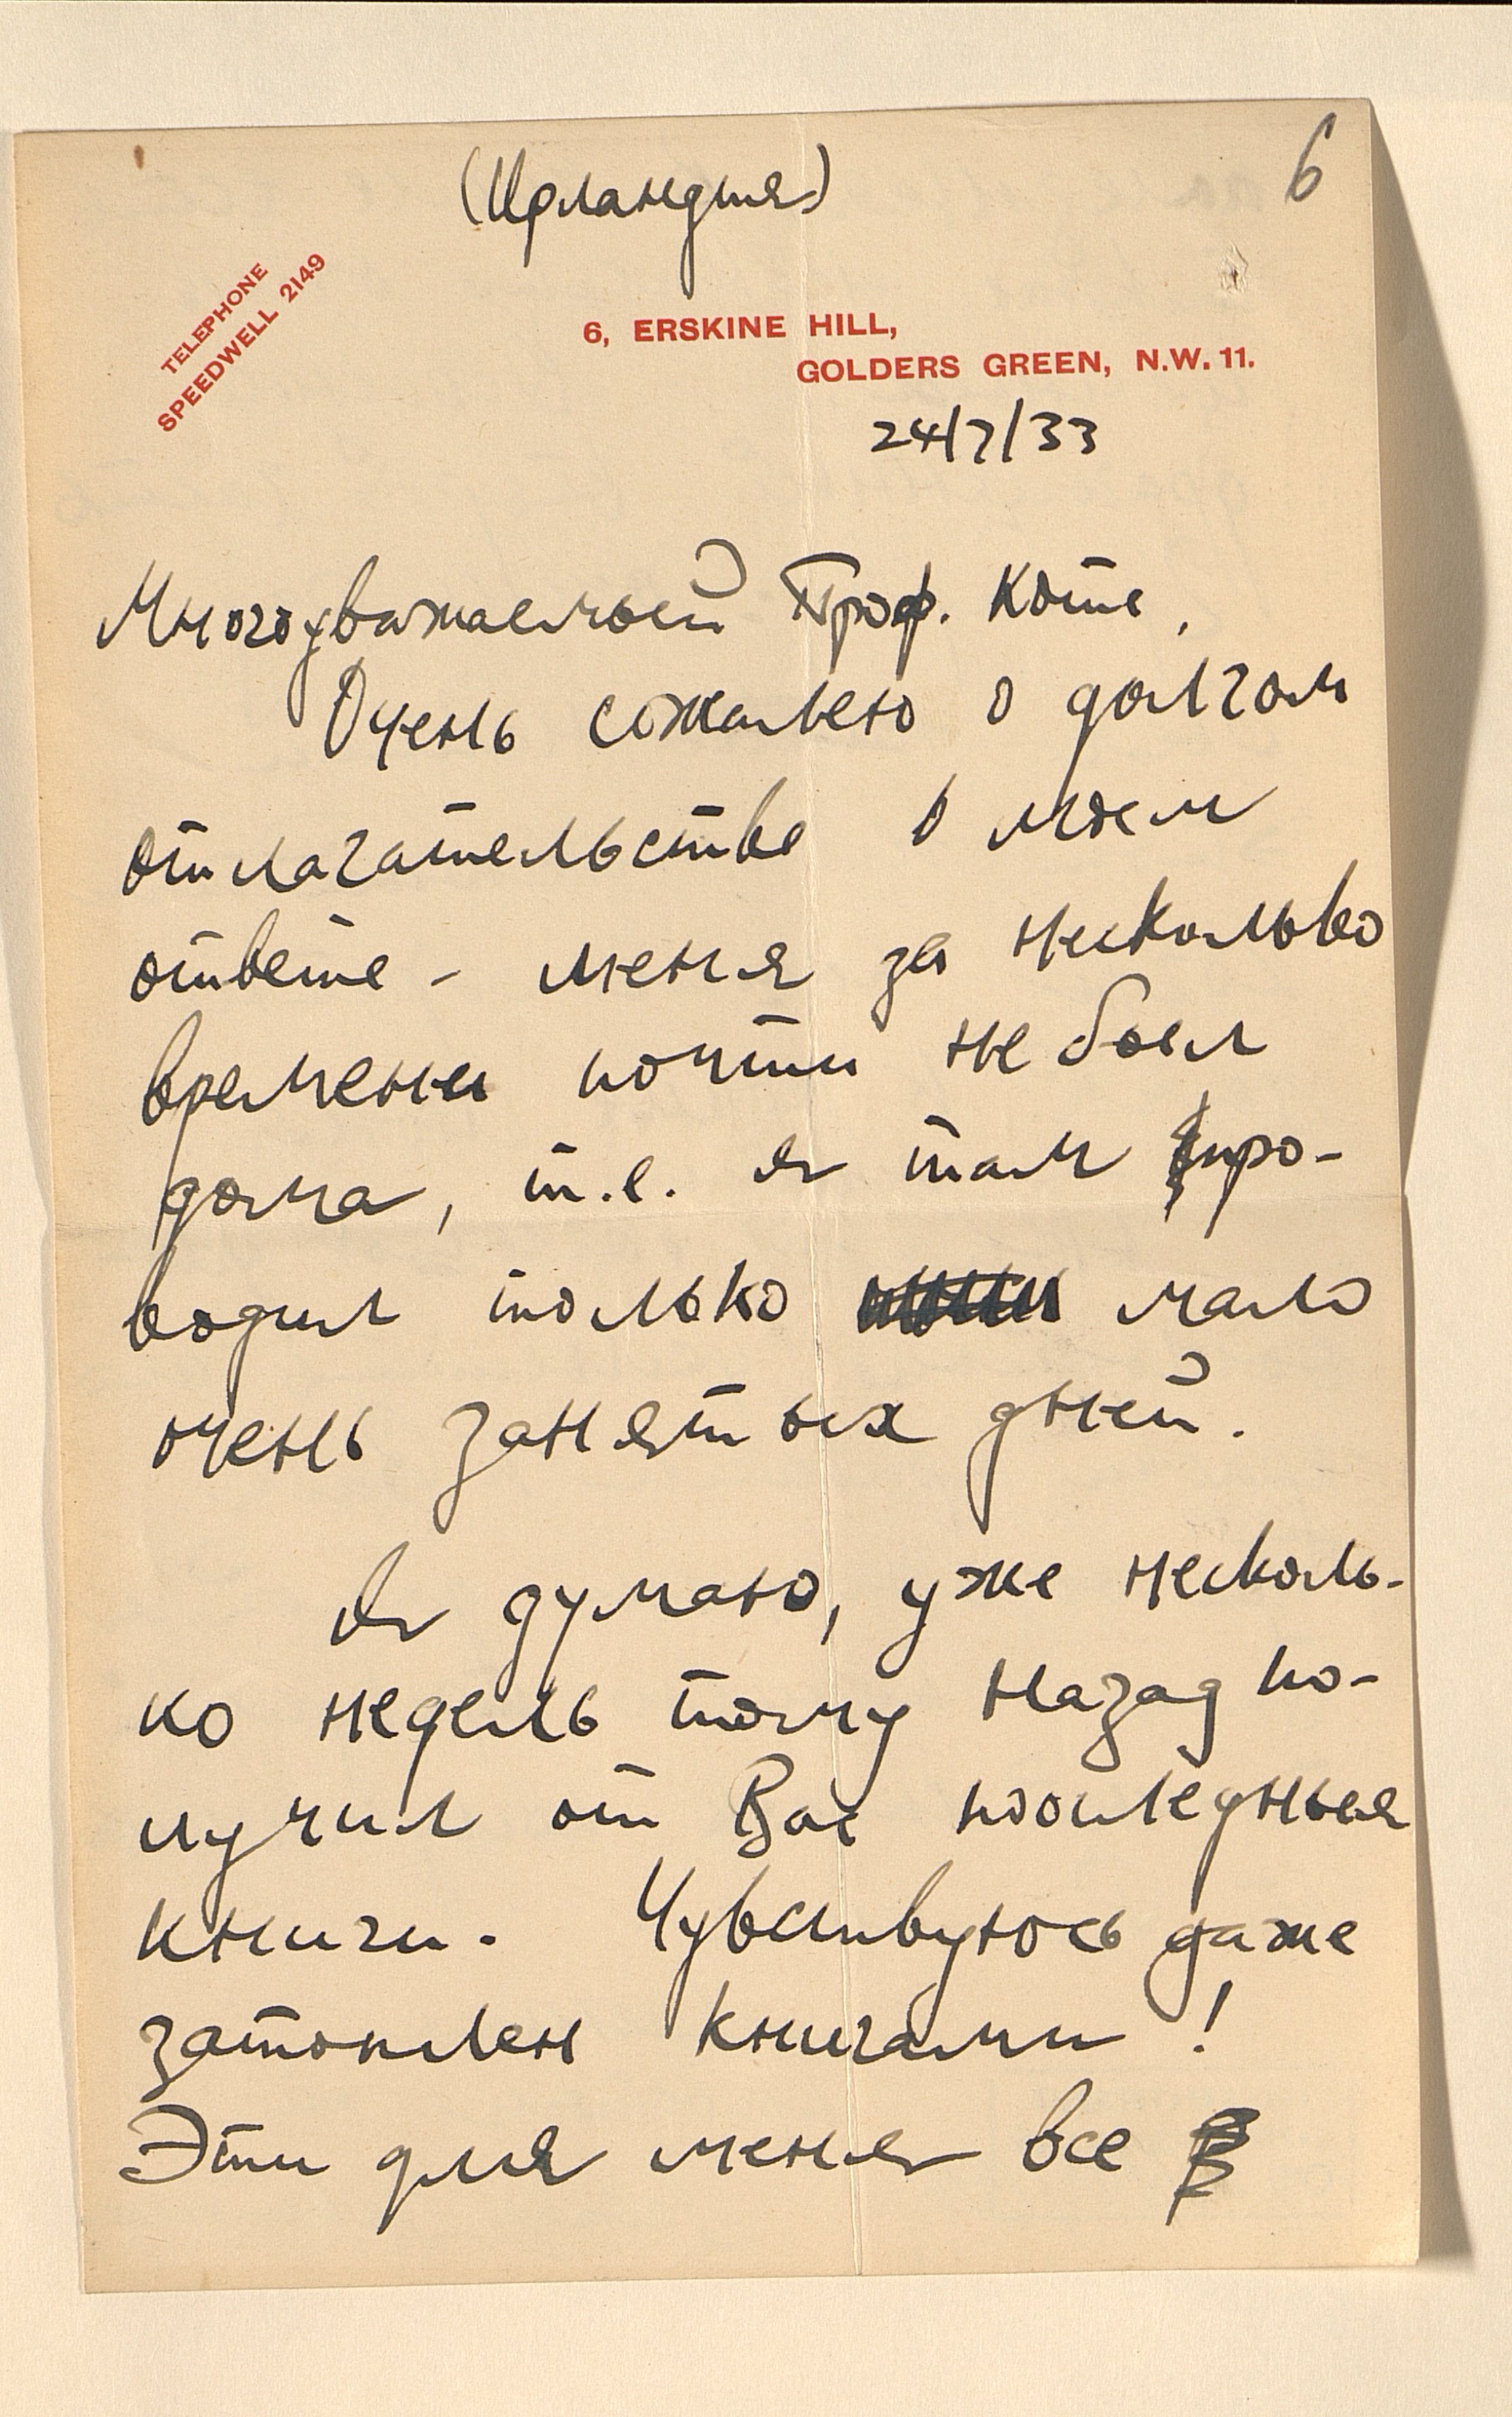 6
(Ирландия)
TELEPHONE
SPEEDWELL 2149
6, ERSKINE HILL,
GOLDERS GREEN, N.W. 11.
24/7/33
Многоуважаемый Проф. Коте,
Очень сожалею о долгом
отлагательстве о моем
ответе - меня за несколько
времени почти не был
дома, т.е. я там про-
водил только мало
очень занятых дней.
Я думаю, уже несколь-
ко недель тому назад по-
лучил от Вас последныя
книги. Чувствуюсь даже
затоплен книгами!
Эти для меня все